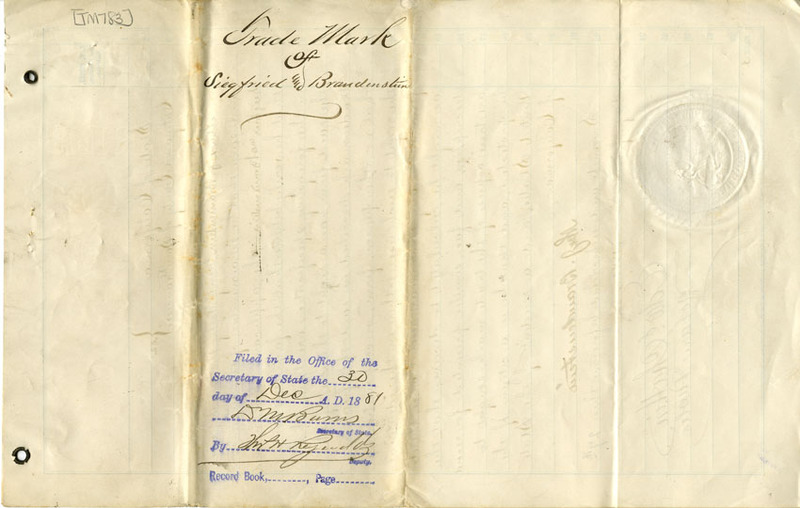 [TM783]
Trade Mark
of
Siegfried Brandenstein
Filed in the Office of the
Secretary of State the 30
day of Dec A. D. 1881
D M Burns
Secretary of State.
By Thos H Reynolds
Deputy.
Record Book, Page